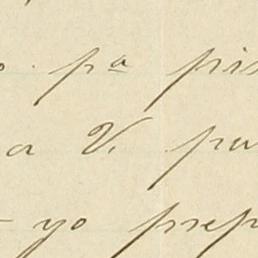 pª pis
a V. pu
yo prep